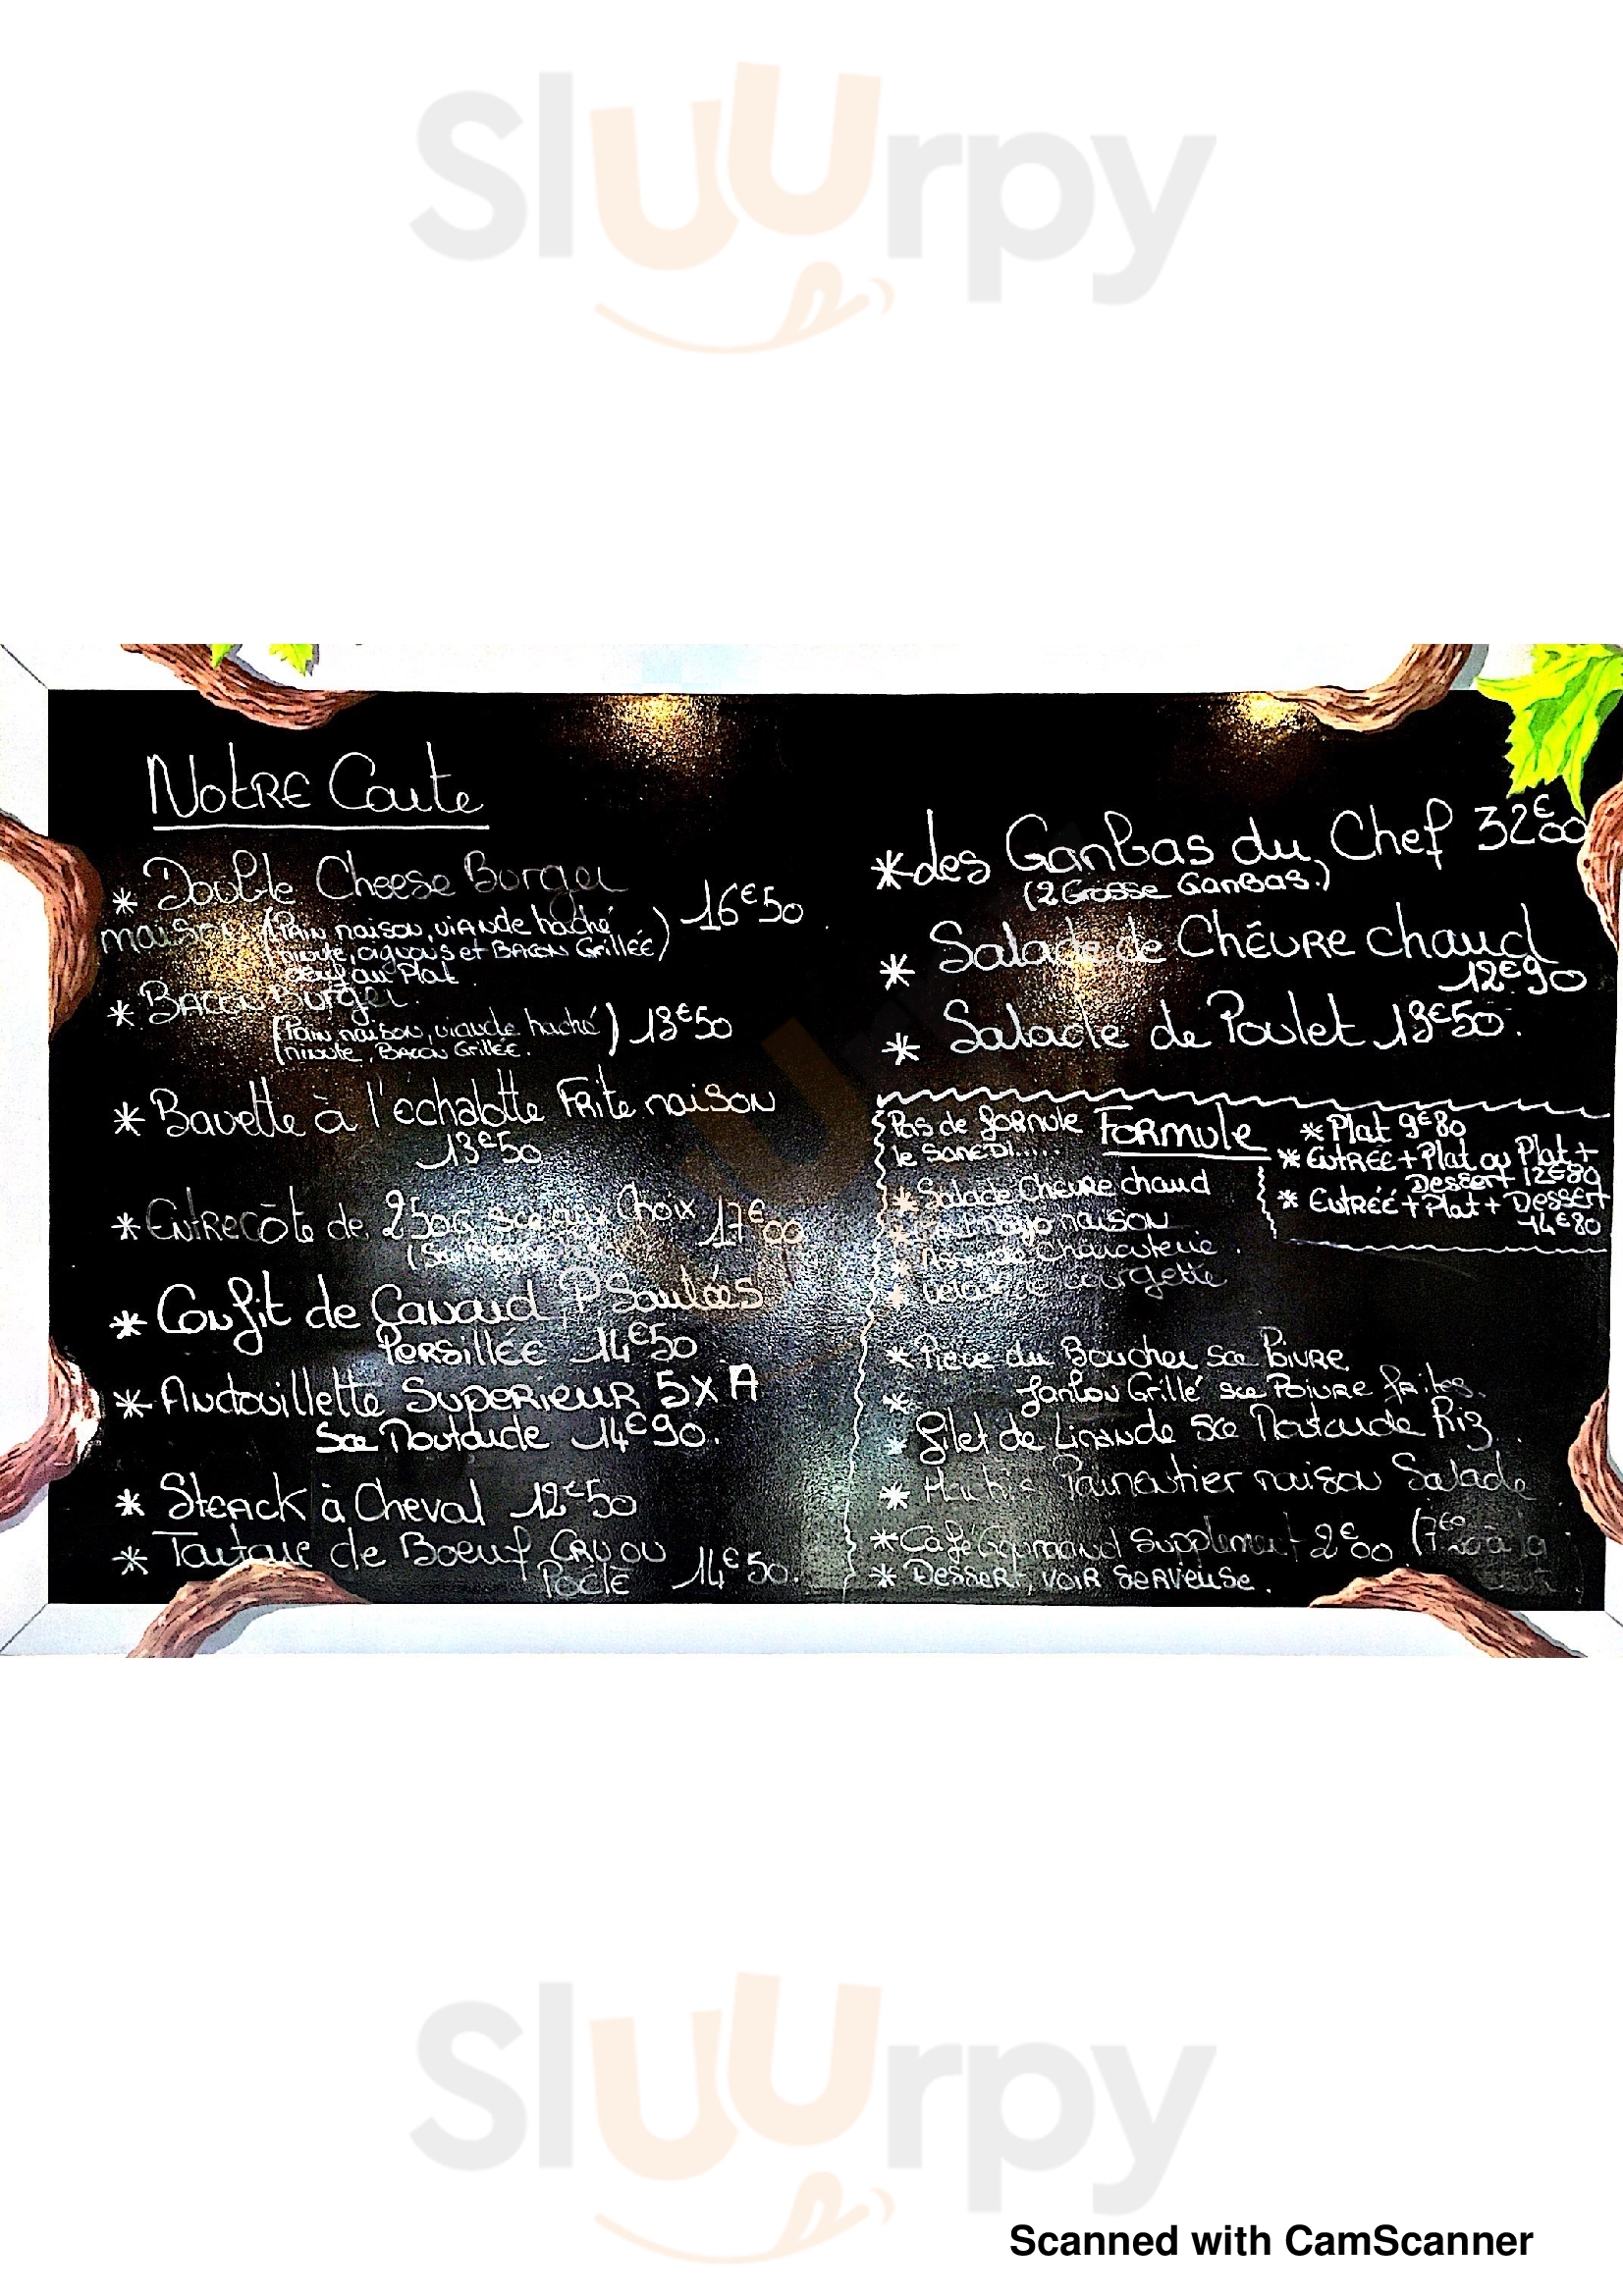 Sluurpy
Notre Carte
* Double Cheese Burger
maison (Pain maison, viande haché
minute, oignons et Bacon Grillée) 16€50
oeuf au Plat
* Bacon Burger
(Pain maison, viande haché) 13€50
minute, Bacon Grillée.
* Bavette à l'echalotte Frite maison
13€50
* Entrecôte de 250G sce au Choix 17€00
* Confit de Canard, P Sautées
Persillée 14€50
* Andouillette Superieur 5xA
Sce Moutarde 14€90.
* Steack à Cheval 12€50
* Tartare de Boeuf Cru ou
Poele 14€50.
* des Ganbas du Chef 32€00
(2 Grosse Ganbas.)
* Salade de Chêvre chaud
12€90
* Salade de Poulet 13€50.
Pas de formule Formule
le samedi.....
* Plat 9€80
* Entrée + Plat ou Plat +
Dessert 12€80
* Entréé + Plat + Dessert
14€80
* Salade Chevre chaud
* mayo maison
* Charcuterie.
* courgette
* Piece du Boucher sce Poivre
* Janbon Grillé sce Poivre frites.
* filet de Limande sce Moutarde Riz.
* Hachis Parmentier maison Salade
* Café Gourmand Supplement 2€00 (7€ à la
* Dessert, voir serveuse.
Sluurpy
Scanned with CamScanner